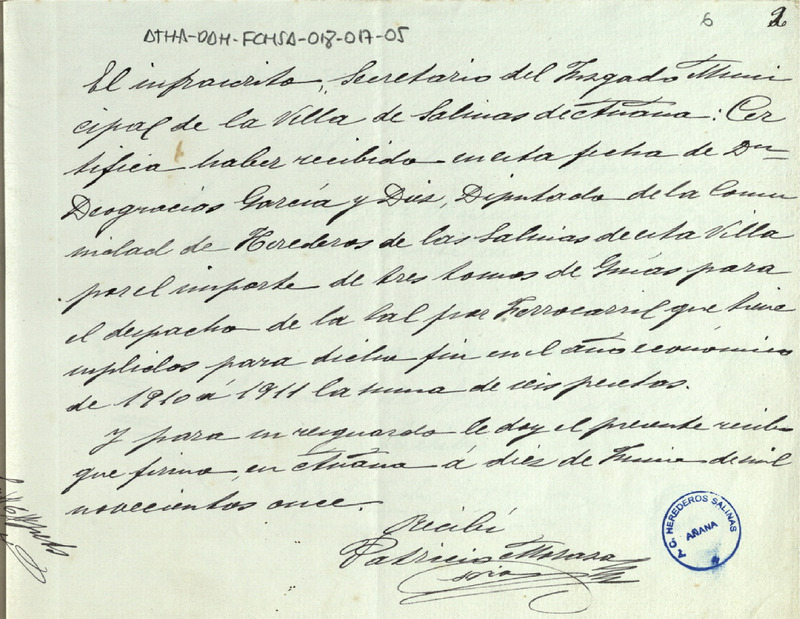 6 2
ATHA-DAH-FCHSA-018-017-05
El infrascrito, Secretario del Juzgado Muni
cipal de la Villa de Salinas de Añana: Cer
tifica haber recibido en esta fecha de Dn
Deogracias García y Diez, Diputado de la Comu
nidad de Herederos de las Salinas de esta Villa
por el importe de tres tomos de Guías para
el despacho de la sal por Ferrocarril que tiene
suplidos para dicho fin en el año económico
de 1910 á 1911 la suma de seis pesetas.
Y para su resguardo le doy el presente recibo
que firmo, en Añana á diez de Junio de mil
novecientos once.
Recibí
Patricio
srio
C. HEREDEROS SALINAS
AÑANA